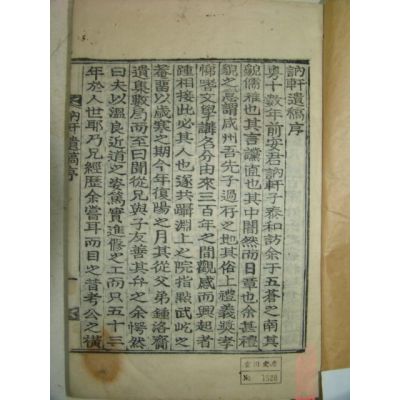 訥軒遺稿序
粤十數年前安君訥軒子泰和訪余于五蒼之南其
貌儒雅也其言讜直也其中闇然而日章也余甚禮
貌之意謂咸州吾先子過存之地其俗上禮義敦孝
悌啓文學講名分由來三百年之間觀感而興起者
踵相接此必其人也遂共躡淵上之院指點武屹之
菴留以歲寒之期今年復陽之月其從父弟鍾洛齎
遺集數局而至曰聞從兄與子友善其弁之余愕然
曰夫以溫良近道之姿篤實進修之工而只五十三
年於人世耶乃兄經歷余嘗耳而目之嘗考公之橫
訥軒遺稿序
一
No 1528